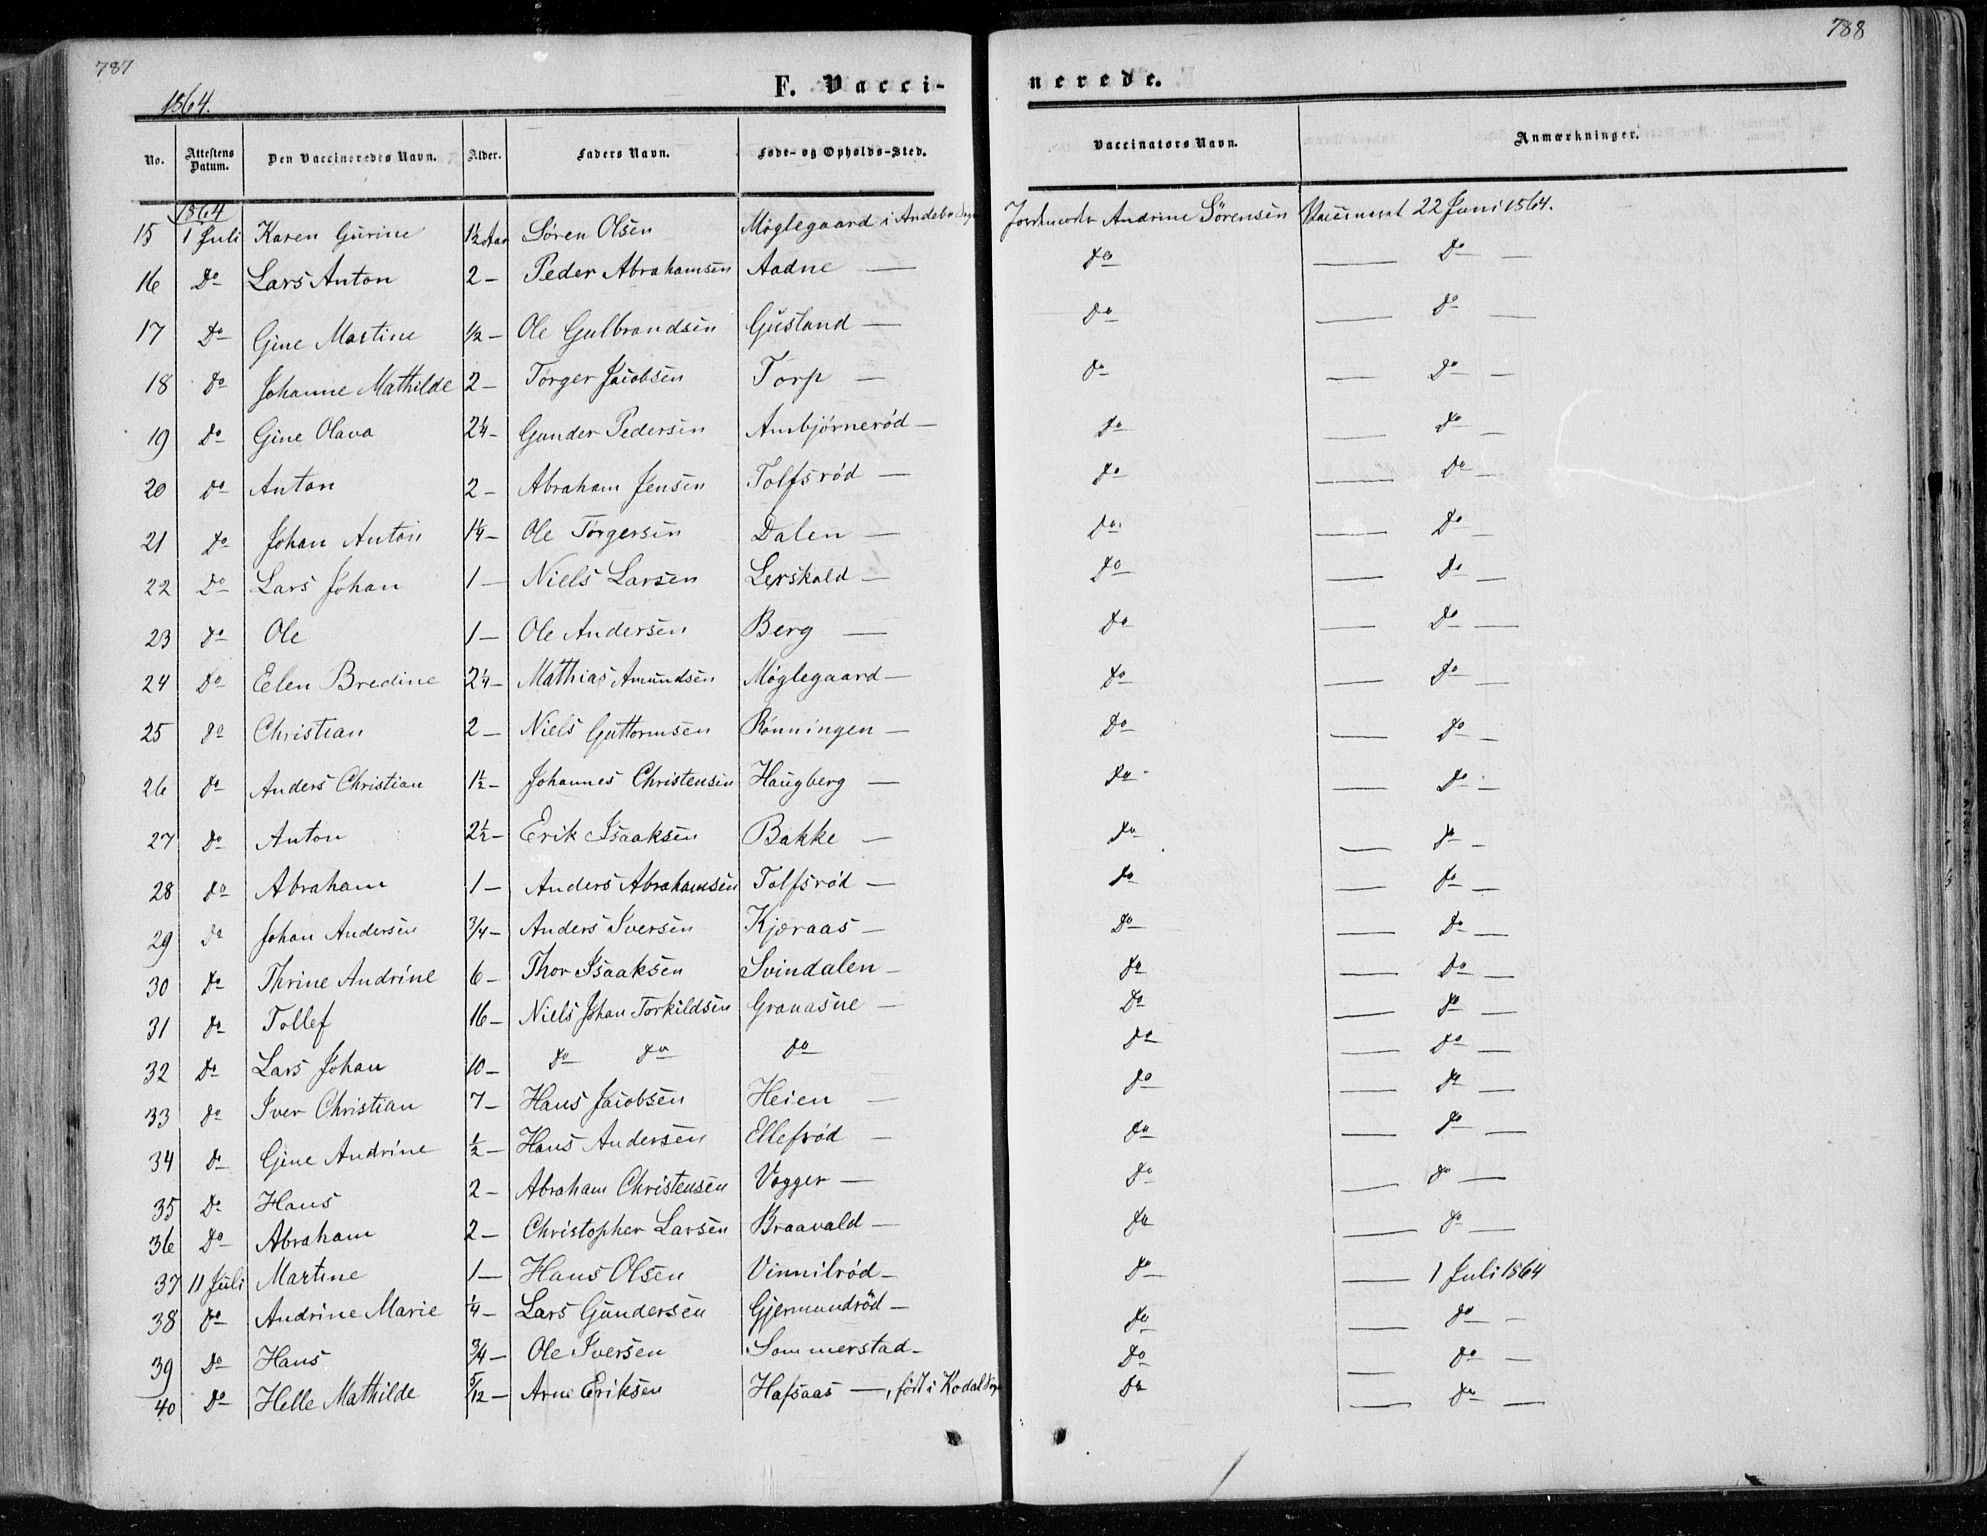 787
788
1864.
F. Vacci-
nerede.
No. | Attestens Datum. | Den Vaccineredes Navn. | Alder. | Faders Navn. | Føde- og Opholds-Sted. | Vaccinators Navn. | Anmærkninger.
1864
15 | 1 Juli | Karen Gurine | 1½ Aar | Søren Olsen | Møglegaard i Andebo Sogn | Jordemoder Andrine Sörensen | Vaccineret 22 Juni 1864.
16 | Do | Lars Anton | 2 — | Peder Abrahamsen | Aadne — | Do | — Do —
17 | Do | Gine Martine | 1/2 — | Ole Gulbrandsen | Gusland — | Do | — Do —
18 | Do | Johanne Mathilde | 2 — | Törger Jacobsen | Torp — | Do | — Do —
19 | Do | Gine Olava | 2¼ — | Gunder Pedersen | Ambjørnerød — | Do | — Do —
20 | Do | Anton | 2 — | Abraham Jensen | Tolfsrød — | Do | — Do —
21 | Do | Johan Anton | 1¼ — | Ole Törgersen | Dalen — | Do | — Do —
22 | Do | Lars Johan | 1 — | Niels Larsen | Lerskald — | Do | — Do —
23 | Do | Ole | 1 — | Ole Andersen | Berg — | Do | — Do —
24 | Do | Eelen Bredine | 2¼ — | Mathias Amundsen | Møglegaard — | Do | — Do —
25 | Do | Christian | 2 — | Niels Guttormsen | Rønningen — | Do | — Do —
26 | Do | Anders Christian | 1½ — | Johannes Christensen | Haugberg — | Do | — Do —
27 | Do | Anton | 2½ — | Erik Isaaksen | Bakke — | Do | — Do —
28 | Do | Abraham | 1 — | Anders Abrahamsen | Tolfsrød — | Do | — Do —
29 | Do | Johan Andersen | 3/4 — | Anders Iversen | Kjæraas — | Do | — Do —
30 | Do | Thrine Andrine | 6 — | Thor Isaaksen | Svindalen — | Do | — Do —
31 | Do | Tollef | 16 — | Niels Johan Torkildsen | Granasne — | Do | — Do —
32 | Do | Lars Johan | 10 — | Do Do | Do | Do | — Do —
33 | Do | Iver Christian | 7 — | Hans Jacobsen | Heien — | Do | — Do —
34 | Do | Gine Andrine | ½ — | Hans Andersen | Ellefrød — | Do | — Do —
35 | Do | Hans | 2 — | Abraham Christensen | Vegger — | Do | — Do —
36 | Do | Abraham | 2 — | Christopher Larsen | Braavald — | Do | — Do —
37 | 11 Juli | Martine | 1 — | Hans Olsen | Vinnilrød — | Do | — 1 Juli 1864
38 | Do | Andrine Marie | ¼ — | Lars Gundersen | Gjermundrød — | Do | — Do —
39 | Do | Hans | 3/4 — | Ole Iversen | Sommerstad — | Do | — Do —
40 | Do | Helle Mathilde | 5/12 — | Arne Eriksen | Hafsaas —, født i Kodal Sogn | Do | — Do —